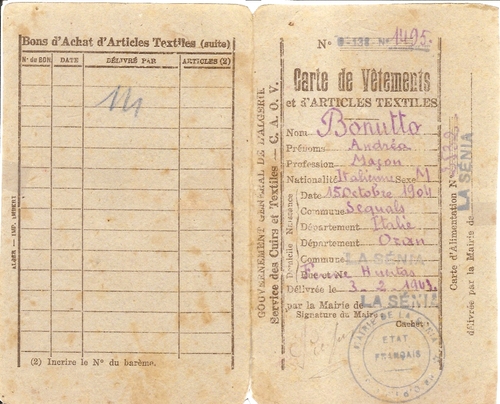 Bons d'Achat d'Articles Textiles (suite)
N° de BON DATE DÉLIVRÉ PAR ARTICLES (2)
ALGER — IMP. IMBERT
(2) Incrire le N° du barème.
GOUVERNEMENT GÉNÉRAL DE L'ALGÉRIE
Service des Cuirs et Textiles — C. A. O. V.
N° 1495
Carte de Vêtements
et d'ARTICLES TEXTILES
Nom Bonutto
Prénoms Andréa
Profession Maçon
Nationalité Italienne Sexe M
Naissance
Date 15 Octobre 1904
Commune Sequals
Département Italie
Domicile
Département Oran
Commune LA SÉNIA
Ferme
Délivrée le 3-2-1943
par la Mairie de LA SÉNIA
Signature du Maire
Cachet
MAIRIE DE LA SÉNIA
ETAT
FRANÇAIS
Carte d'Alimentation N°
délivrée par la Mairie de LA SÉNIA